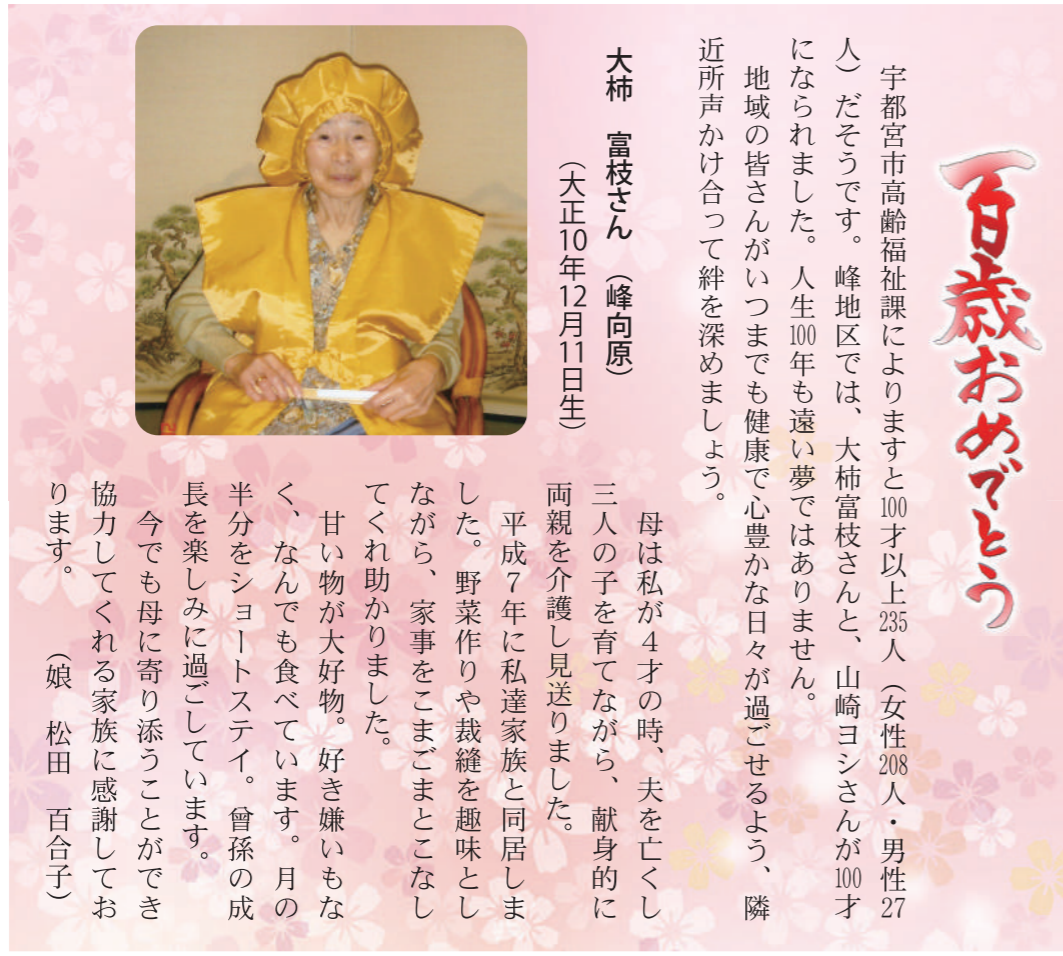 百歳おめでとう
宇都宮市高齢福祉課によりますと100才以上235人（女性208人・男性27
人）だそうです。峰地区では、大柿富枝さんと、山崎ヨシさんが100才
になられました。人生100年も遠い夢ではありません。
地域の皆さんがいつまでも健康で心豊かな日々が過ごせるよう、隣
近所声かけ合って絆を深めましょう。
大柿　富枝さん　（峰向原）
（大正10年12月11日生）
母は私が４才の時、夫を亡くし
三人の子を育てながら、献身的に
両親を介護し見送りました。
平成７年に私達家族と同居しま
した。野菜作りや裁縫を趣味とし
ながら、家事をこまごまとこなし
てくれ助かりました。
甘い物が大好物。好き嫌いもな
く、なんでも食べています。月の
半分をショートステイ。曾孫の成
長を楽しみに過ごしています。
今でも母に寄り添うことができ
協力してくれる家族に感謝してお
ります。　　（娘　松田　百合子）